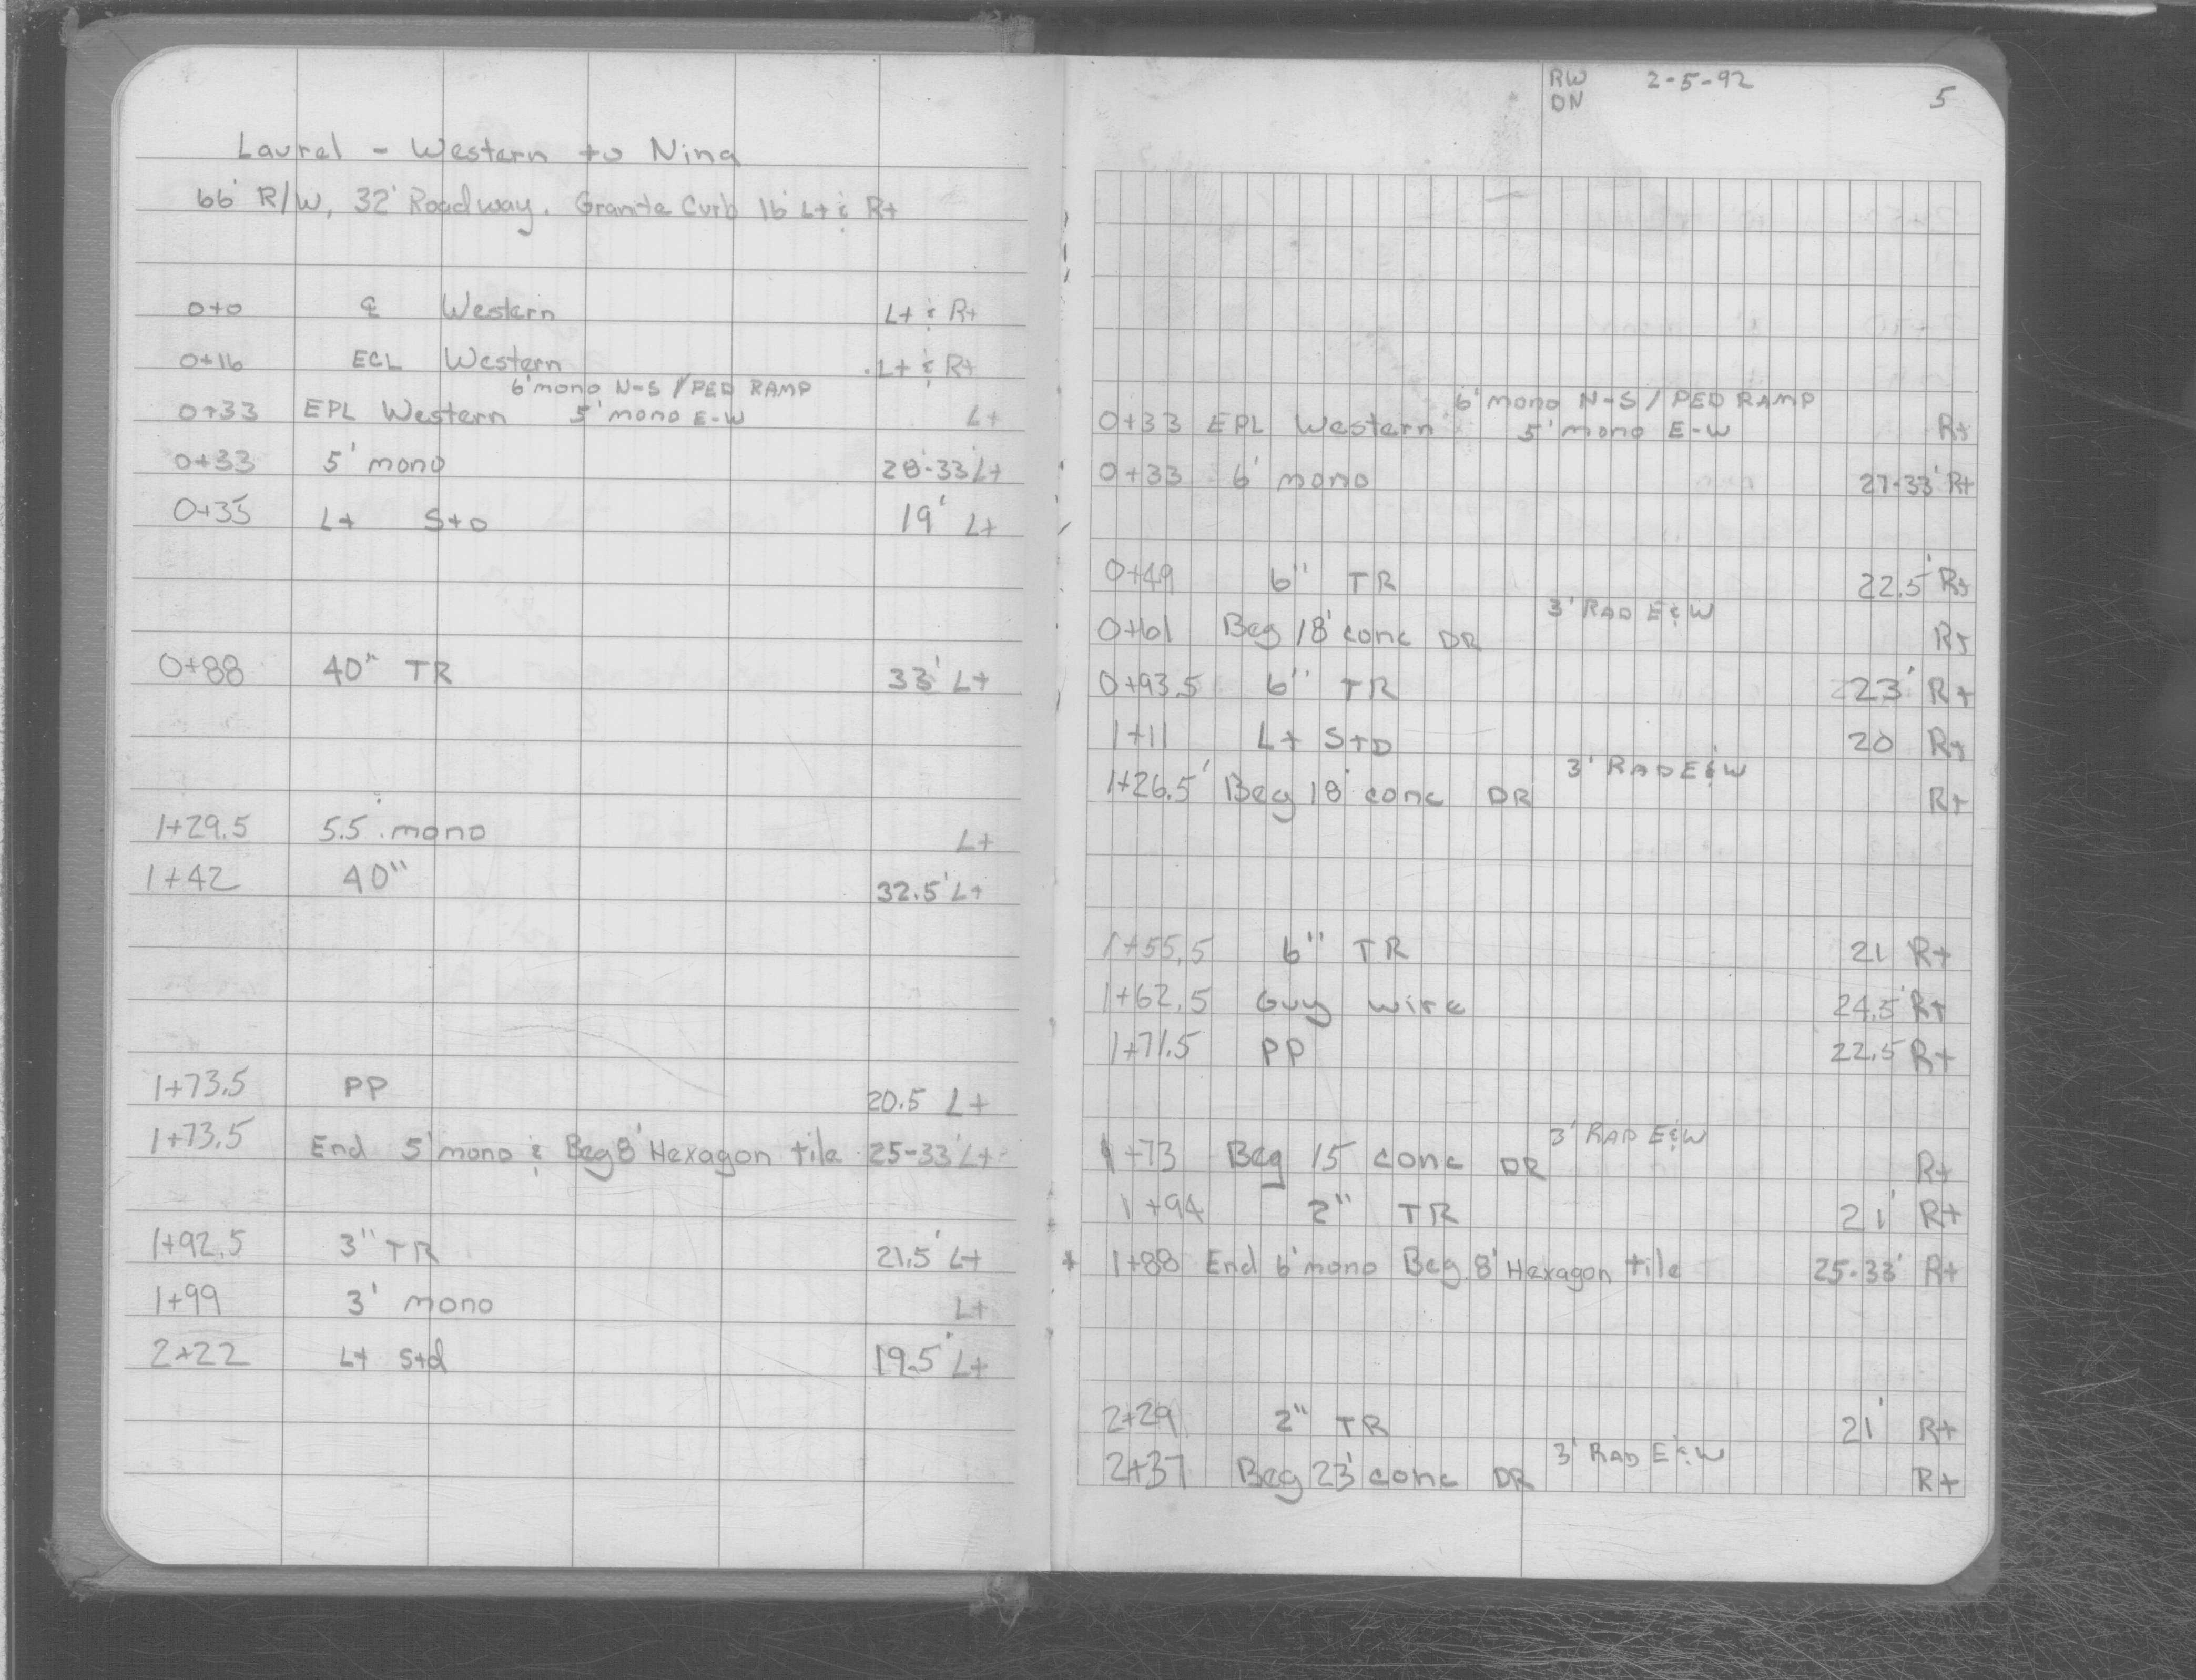 Laurel - Western to Nina
66' R/W, 32' Roadway. Granite Curb 16' Lt & Rt
0+0 ℄ Western Lt & Rt
0+16 ECL Western Lt & Rt
6' mono N-S / PED RAMP
0+33 EPL Western 5' mono E-W Lt
0+33 5' mono 28-33' Lt
0+35 Lt STD 19' Lt
0+88 40" TR 33' Lt
1+29.5 5.5' mono Lt
1+42 40" 32.5' Lt
1+73.5 PP 20.5 Lt
1+73.5 End 5' mono & Beg 8' Hexagon tile 25-33' Lt
1+92.5 3" TR 21.5' Lt
1+99 3' mono Lt
2+22 Lt Std 19.5' Lt
RW 2-5-92 5
DN
6' mono N-S / PED RAMP
0+33 EPL Western 5' mono E-W Rt
0+33 6' mono 27-33' Rt
0+49 6" TR 22.5' Rt
3' RAD E & W
0+61 Beg 18' conc DR Rt
0+93.5 6" TR 23' Rt
1+11 Lt STD 20 Rt
3' RAD E & W
1+26.5' Beg 18' conc DR Rt
1+55.5 6" TR 21 Rt
1+62.5 Guy wire 24.5' Rt
1+71.5 PP 22.5 Rt
3' RAD E & W
1+73 Beg 15' conc DR Rt
1+94 2" TR 21' Rt
* 1+88 End 6' mono Beg. 8' Hexagon tile 25-33' Rt
2+29 2" TR 21' Rt
3' RAD E & W
2+37 Beg 23' conc DR Rt